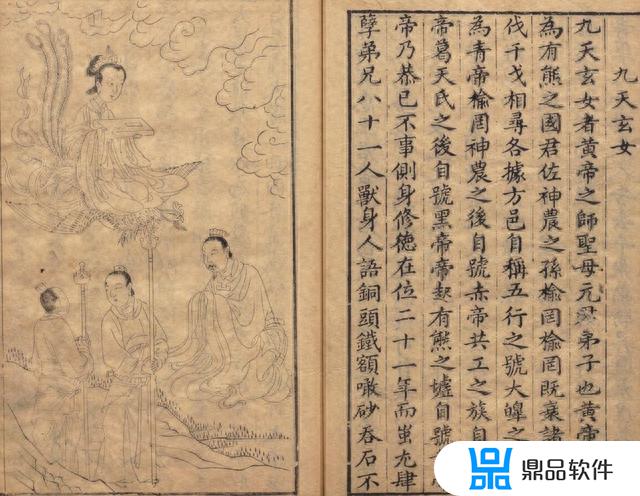 九天玄女
九天玄女者黃帝之師聖母元君弟子也黃帝
為有熊之國君佐神農之孫榆罔榆罔既衰諸
伐千戈相尋各據方邑自稱五行之號大皥之
為青帝榆罔神農之後自號赤帝共工之族自
帝葛天氏之後自號黑帝帝起有熊之墟自號
帝乃恭己不事側身修德在位二十一年而蚩尤肆
孽弟兄八十一人獸身人語銅頭鐵額噉砂吞石不
鼎品软件